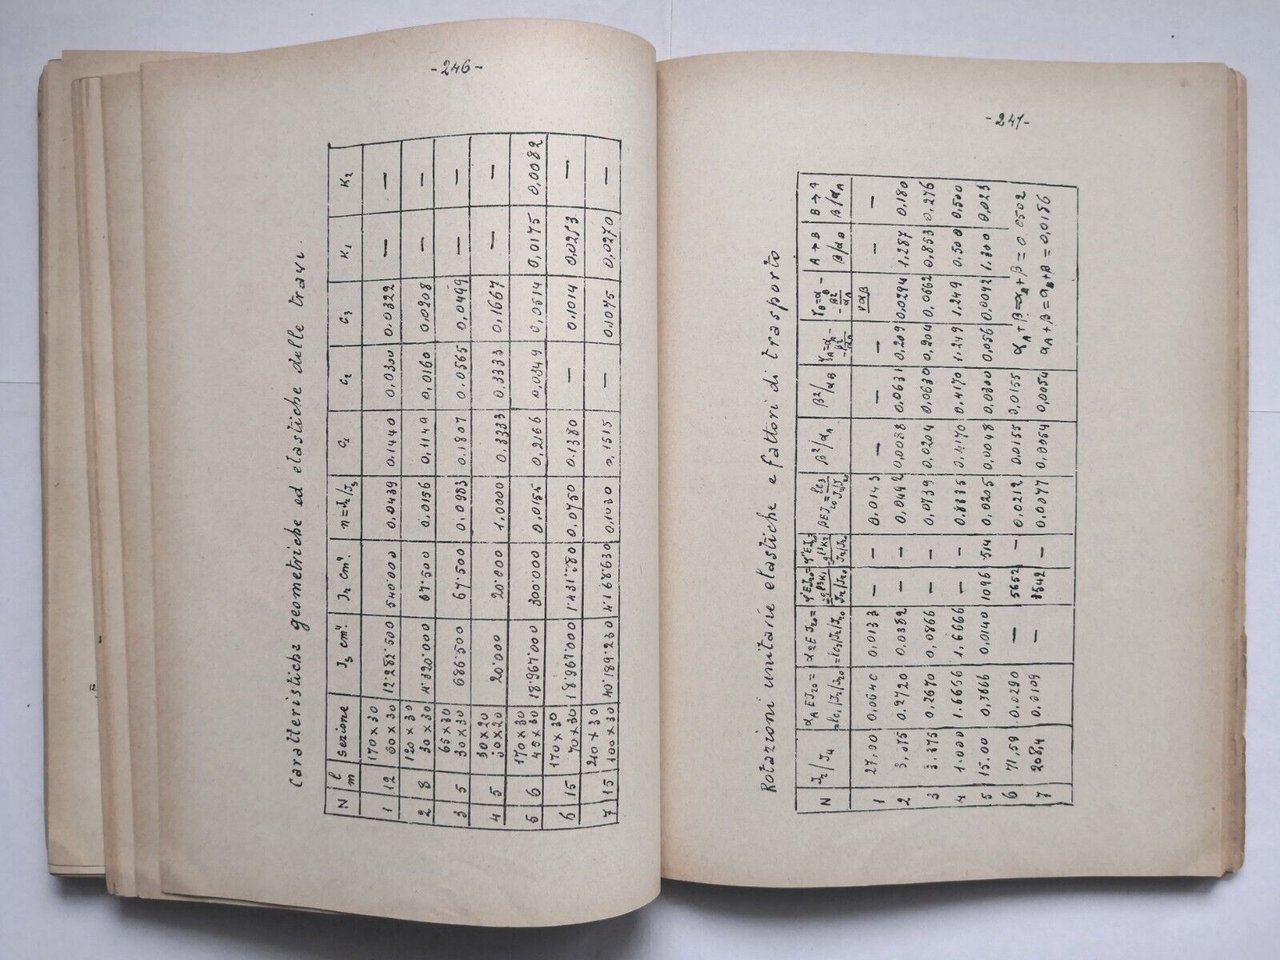 -246-
Caratteristiche geometriche ed elastiche delle travi.
N l m Sezione J₃ cm⁴ J₂ cm⁴ n=J₂/J₃ c₁ c₂ c₃ K₁ K₂
1 12 170×30 60×30 12·282·500 540·000 0.0439 0.1440 0,0300 0.0322 — —
2 8 120×30 30×30 4·320·000 67·500 0.0156 0,1140 0,0160 0,0208 — —
3 5 65×30 30×30 686·500 67·500 0.0983 0.1807 0.0565 0,0449 — —
4 5 30×20 20·000 20·000 1,0000 0,3333 0.3333 0,1667 — —
5 6 170×30 45×30 18·967·000 300·000 0,0155 0,2166 0,0349 0,0514 0,0175 0,0082
6 15 170×30 70×30 18·967·000 0,0750 0.1380 — 0,1014 0,0253 —
7 15 210×30 100×30 40·189·230 4·168·630 0,1030 0,1515 — 0,1075 0,0270 —
-247-
Rotazioni unitarie elastiche e fattori di trasporto
N J₂/J₄ β²/αA β²/αB A→B β/αB B→A β/αA
1 27,00 0,0640 0,0133 — — 0.0143 — — — — — —
2 0.2720 0,0382 — — 0,0492 0,0088 0,0631 0,209 0,0294 1,287 0.180
3 3.375 0.2670 0,0866 — — 0,0739 0,0204 0,0630 0,204 0,0662 0,853 0,276
4 1.000 1.6666 1,6666 — — 0.8335 0.4170 0.4170 1.249 1.249 0.500 0,500
5 15.00 0,0140 1096 514 0,0205 0,0048 0,0300 0,056 0,0092 0,023
6 71,59 0,0290 — 5652 — 0,0212 0.0155 0,0155 αA+β=αB+β=0.0502
7 208,4 0,0109 — 8642 — 0,0077 0,0054 0,0054 αA+β=αB+β=0,0186